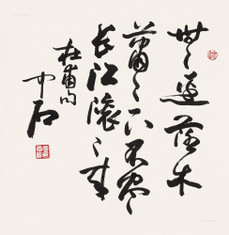 無ミ邊落木
蕭〻下不盡
長江滾〻來
杜甫句
中石